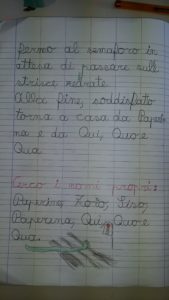 fermo al semaforo in
attesa di passare sull
strisce pedonali
Alla fine, soddisfatto
torna a casa da Paperi-
na e da Qui, Quo e
Qua.
Cerco i nomi propri:
Paperino,
Paperina, Qui, Quo e
Qua.